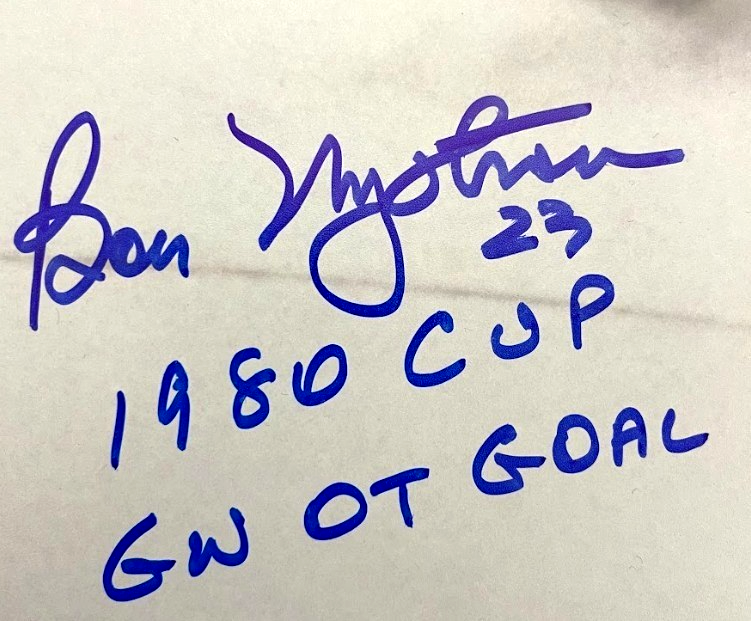 Bob Nystrom
23
1980 CUP
GW OT GOAL